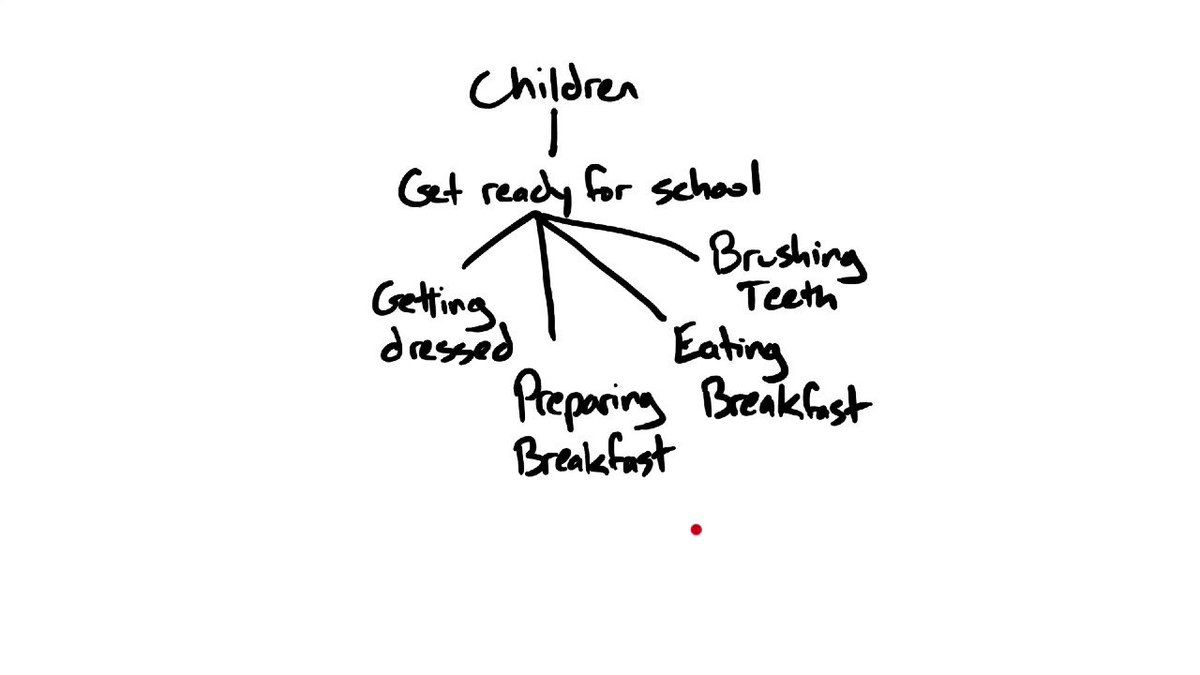 Children
Get ready for school
Getting
dressed
Preparing
Breakfast
Eating
Breakfast
Brushing
Teeth